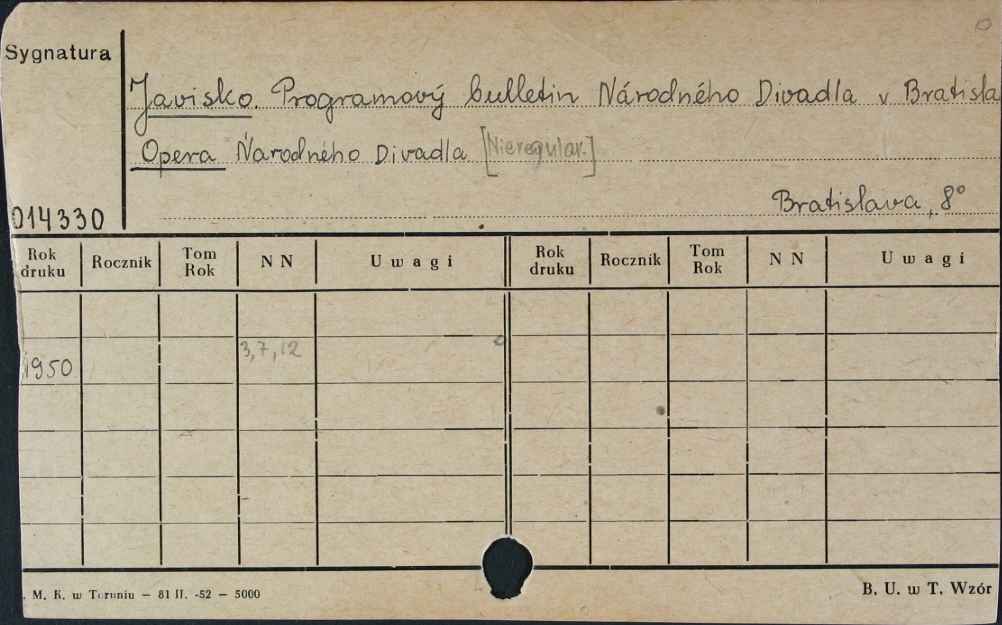 Sygnatura
Javisko. Programový bulletin Národného Divadla v Bratisla
Opera Národného Divadla [Nieregular.]
014330
Bratislava, 8°
Rok druku Rocznik Tom Rok NN Uwagi Rok druku Rocznik Tom Rok NN Uwagi
1950 3,7,12
. M. K. w Toruniu — 81 II. -52 — 5000
B. U. w T. Wzór